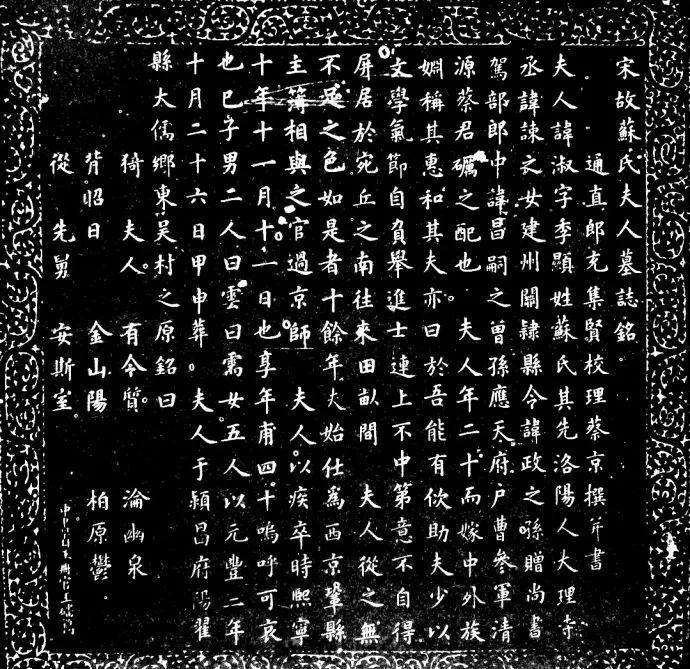 宋故蘇氏夫人墓誌銘
通直郎充集賢校理蔡京撰并書
夫人諱淑字季顯姓蘇氏其先洛陽人大理寺
丞諱諫之女建州關隸縣令諱政之孫贈尚書
駕部郎中諱昌嗣之曾孫應天府戶曹參軍清
源蔡君礪之配也 夫人年二十而嫁中外族
婣稱其惠和其夫亦曰於吾能有佽助夫少以
文學氣節自負舉進士連上不中第意不自得
屏居於宛丘之南往來田畝間 夫人從之無
不足之色如是者十餘年夫始仕為西京鞏縣
主簿相與之官過京師 夫人以疾卒時熙寧
十年十一月十一日也享年甫四十嗚呼可哀
也已子男二人曰雲曰需女五人以元豐二年
十月二十六日甲申葬 夫人于潁昌府陽翟
縣大儒鄉東吴村之原銘曰
猗夫人 有令質 淪幽泉
背昭日 金山陽 柏原鬱
從先舅 安斯室